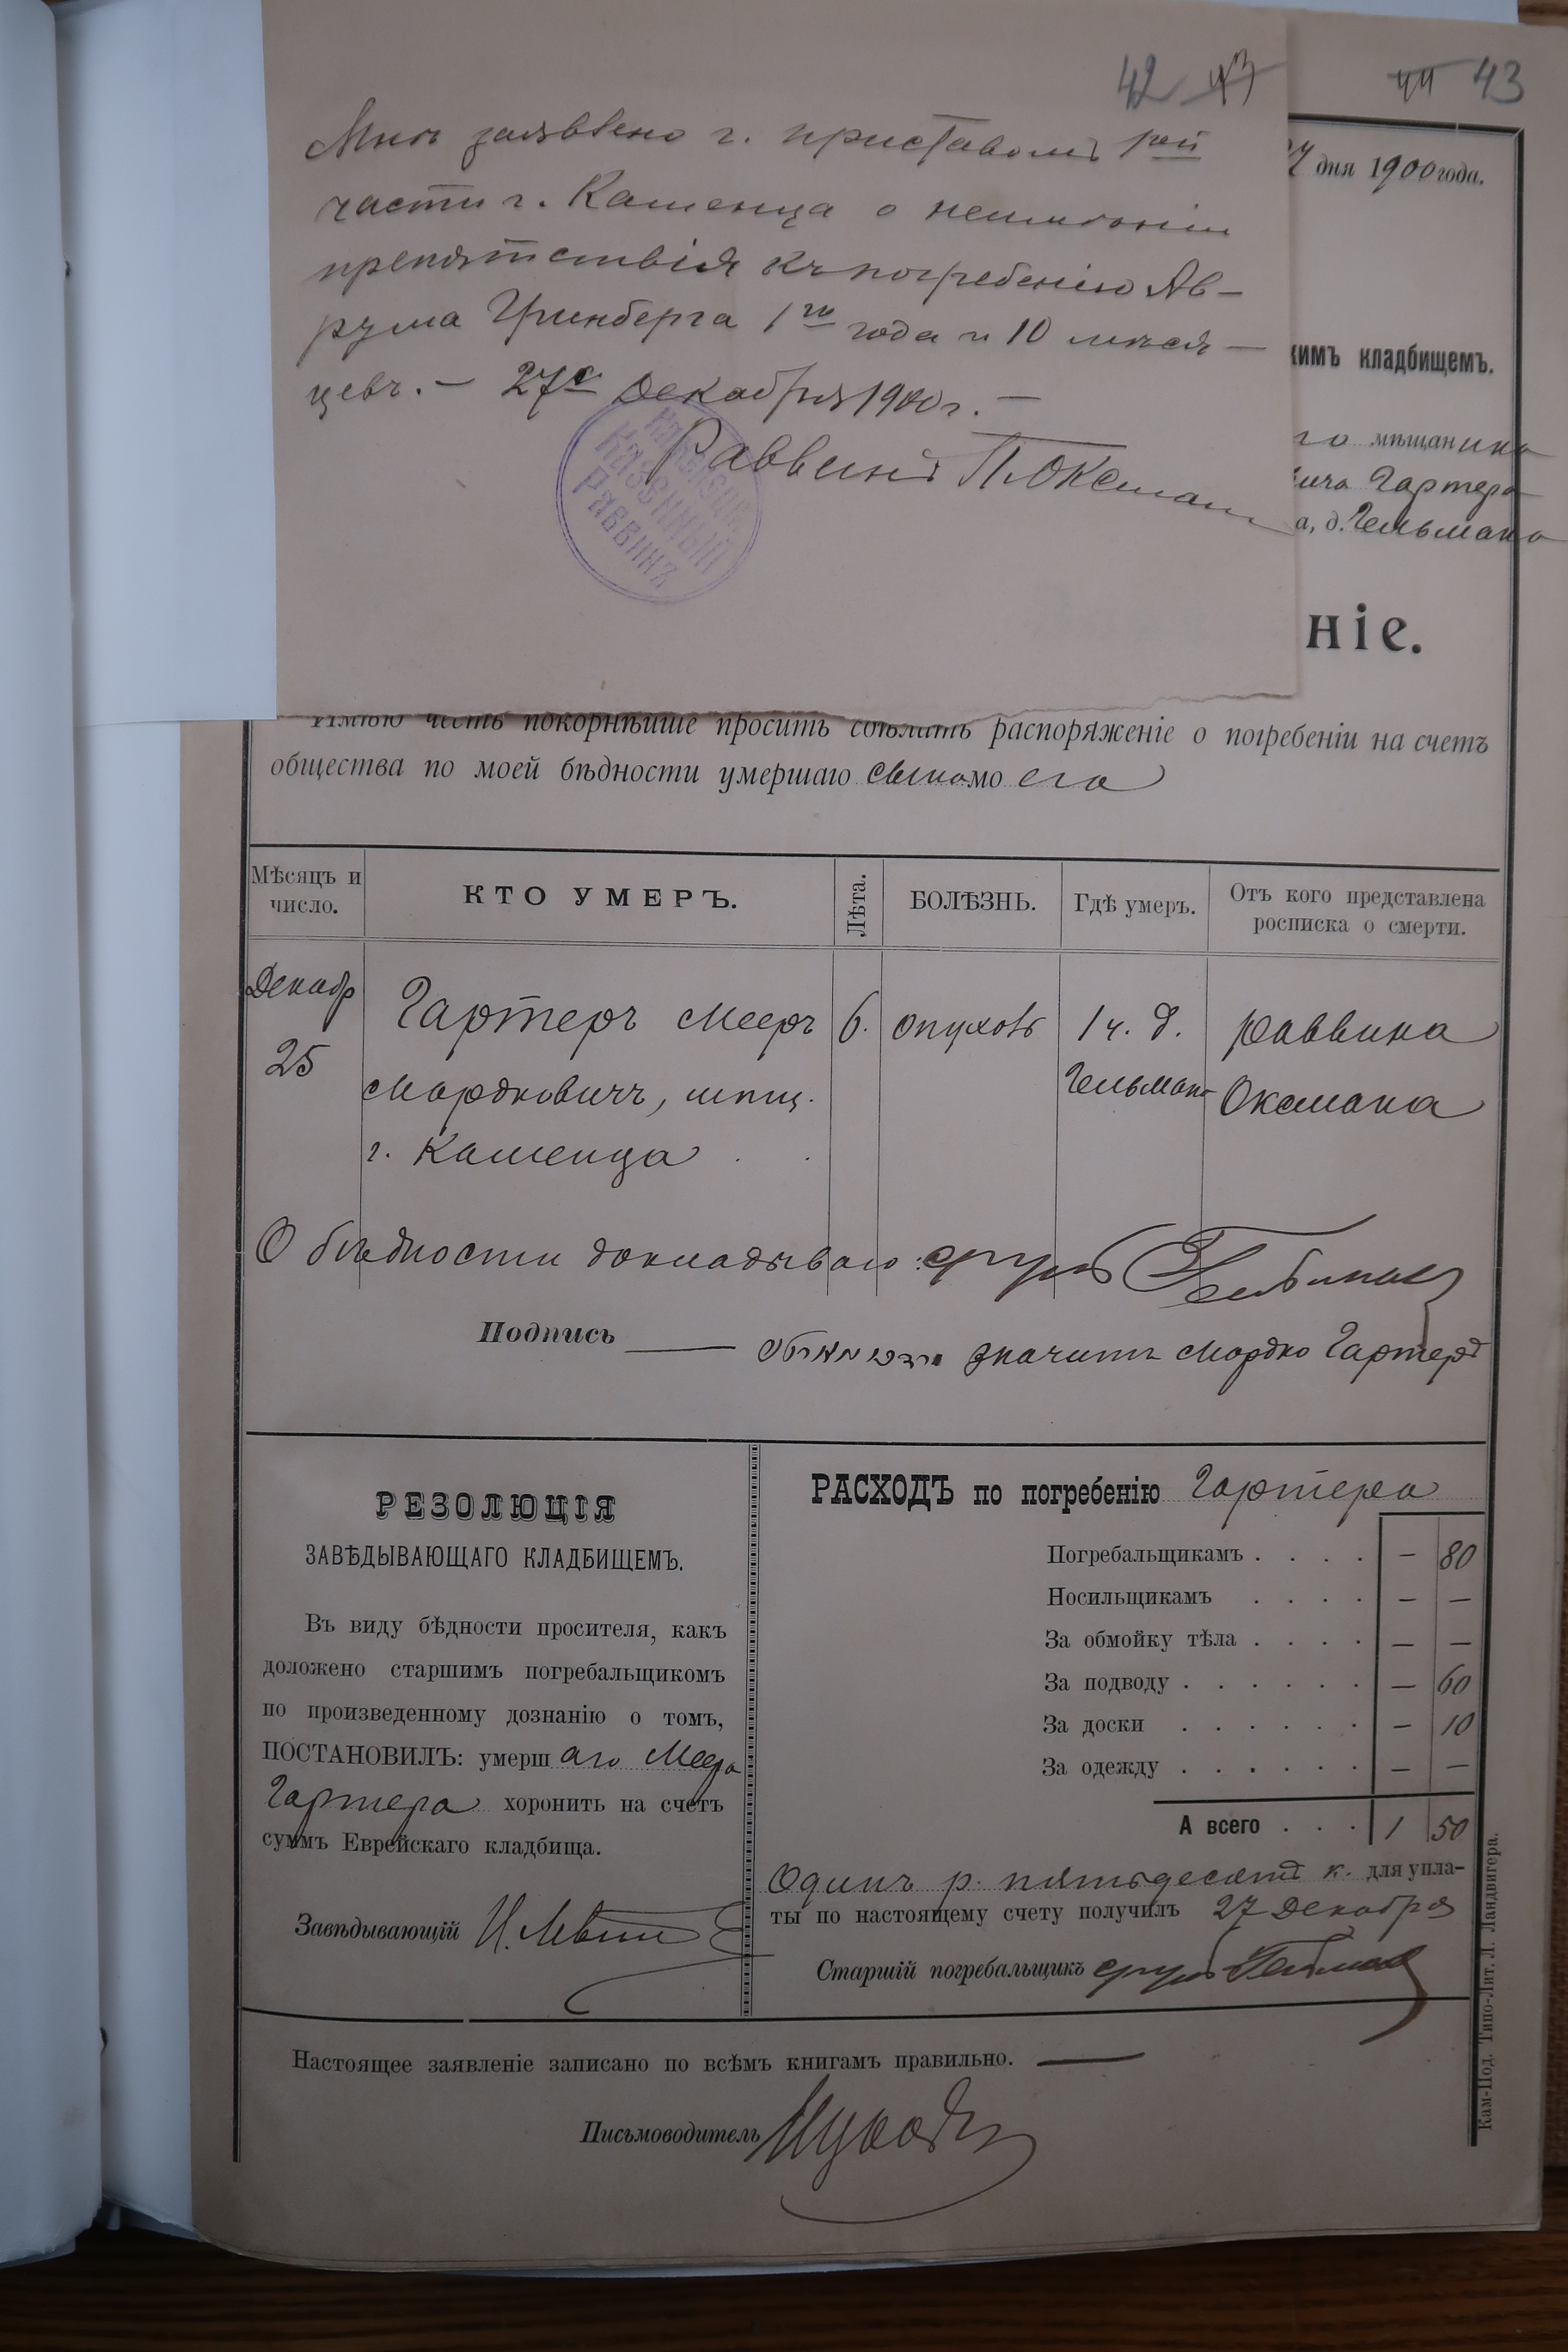 42 43
44 43
Мнѣ заявлено г. приставомъ 1ой
части г. Каменца о неимѣніи
препятствія къ погребенію Ав-
рума Гринберга 1го года и 10 мѣся-
цевъ. — 27го Декабря 1900 г. —
Раввинъ П. Оксман
Казенный
Раввинъ
дня 1900 года.
кимъ кладбищемъ.
го мѣщанина
ича Гартера
а, д. Гельмана
ніе.
Имѣю честь покорнѣйше просить сдѣлать распоряженіе о погребеніи на счетъ
общества по моей бѣдности умершаго сына мо его
Мѣсяцъ и
число.
КТО УМЕРЪ.
Лѣта.
БОЛѢЗНЬ.
Гдѣ умеръ.
Отъ кого представлена
росписка о смерти.
Декабр
25
Гартеръ Мееръ
Мордковичъ, мѣщ.
г. Каменца
6.
опухоль
1 ч. д.
Гельмана
Раввина
Оксмана
О бѣдности докладываю:
Подпись
значитъ Мордко Гартеръ
РЕЗОЛЮЦІЯ
ЗАВѢДЫВАЮЩАГО КЛАДБИЩЕМЪ.
Въ виду бѣдности просителя, какъ
доложено старшимъ погребальщикомъ
по произведенному дознанію о томъ,
ПОСТАНОВИЛЪ: умерш аго Меера
Гартера хоронить на счетъ
суммъ Еврейскаго кладбища.
Завѣдывающій
РАСХОДЪ по погребенію Гартера
Погребальщикамъ . . . . — 80
Носильщикамъ . . . . — —
За обмойку тѣла . . . . — —
За подводу . . . . . . — 60
За доски . . . . . . — 10
За одежду . . . . . . — —
А всего . . . 1 50
Одинъ р. пятьдесятъ к. для упла-
ты по настоящему счету получилъ 27 Декабря
Старшій погребальщикъ
Настоящее заявленіе записано по всѣмъ книгамъ правильно. —
Письмоводитель
Кам-Под. Типо-Лит. Л. Ландвигера.